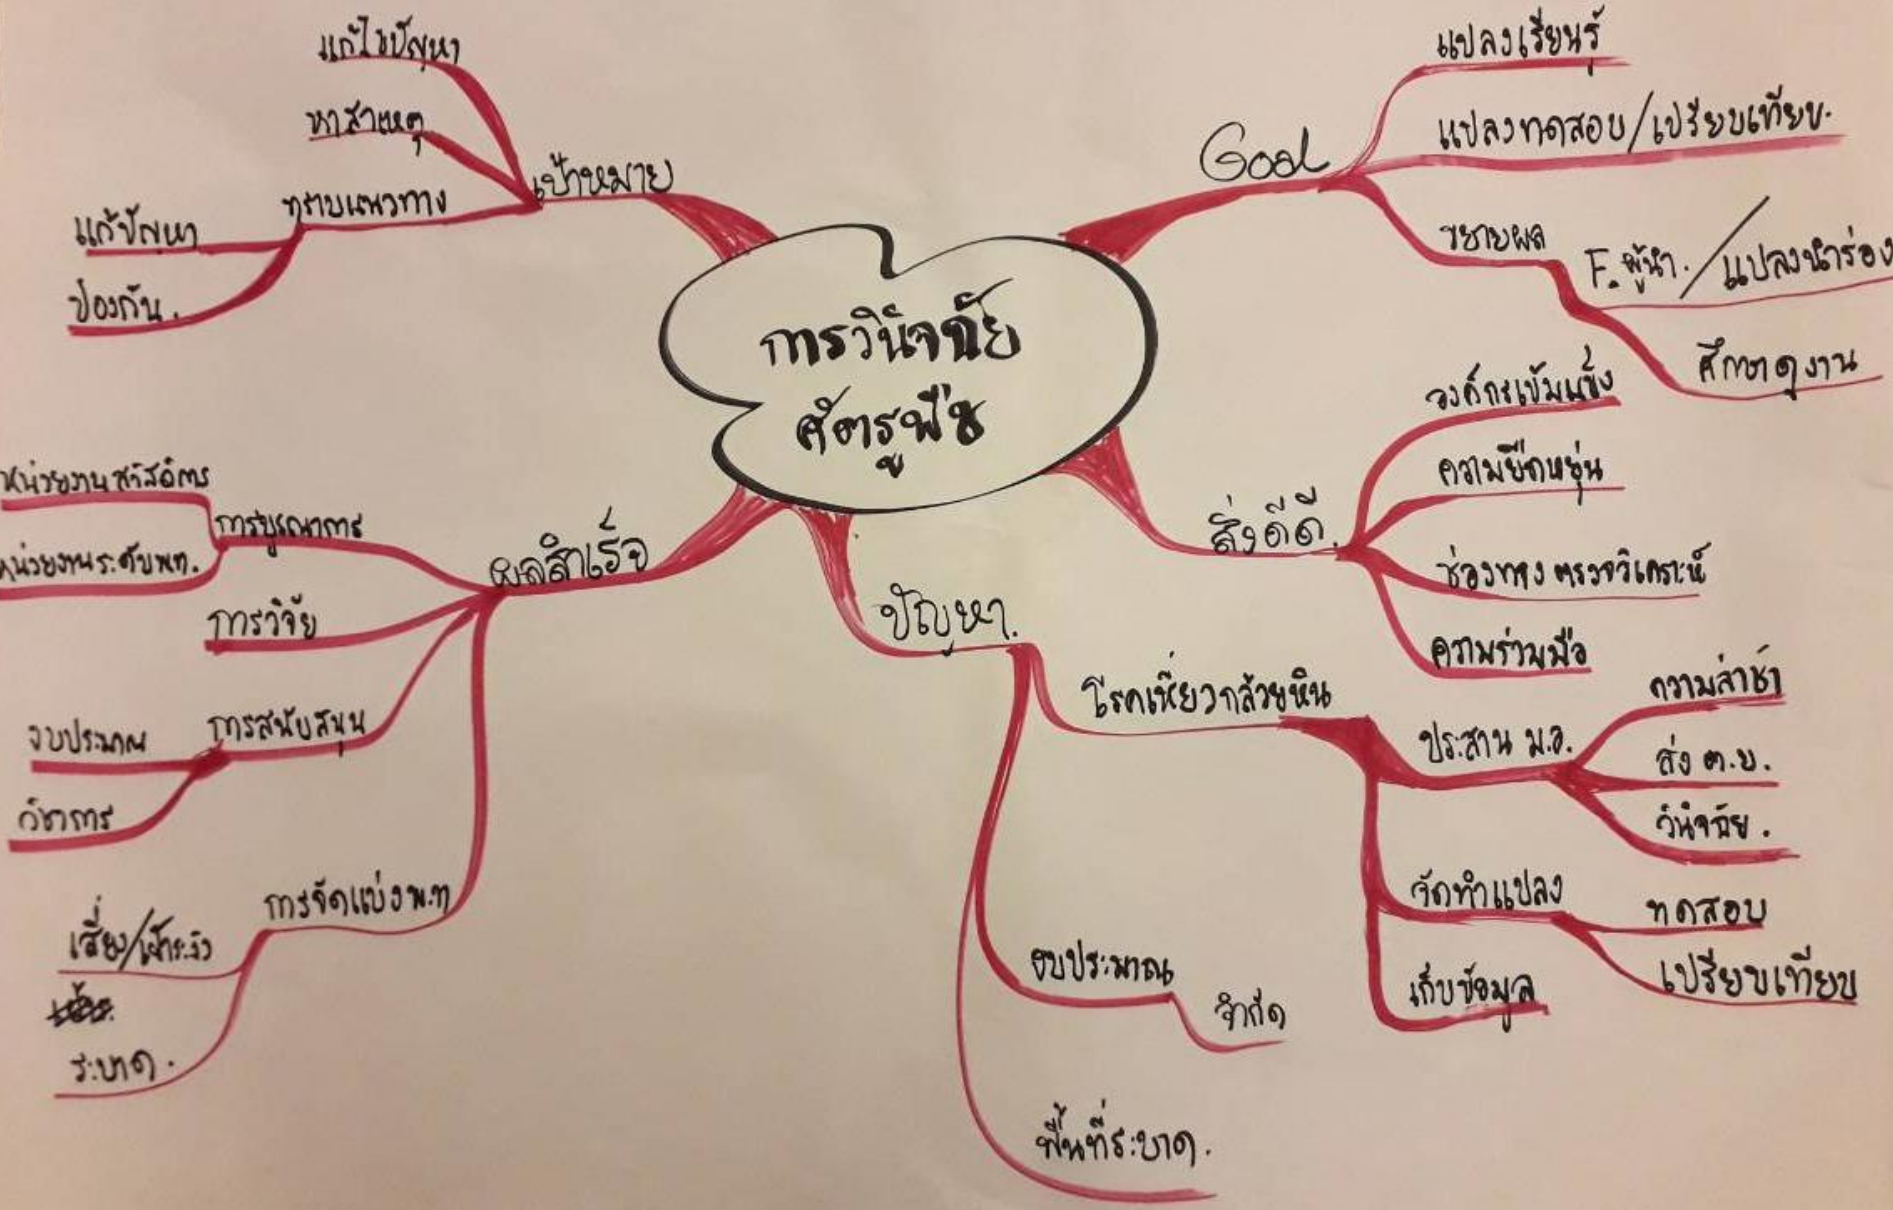 การวินิจฉัย
ศัตรูพืช
เป้าหมาย
แก้ไขปัญหา
หาสาเหตุ
ทราบแนวทาง
แก้ปัญหา
ป้องกัน.
Goal
แปลงเรียนรู้
แปลงทดสอบ/เปรียบเทียบ.
ขยายผล
F. ผู้นำ. / แปลงนำร่อง
ศึกษาดูงาน
สิ่งดีดี.
องค์กรเข้มแข็ง
ความยืดหยุ่น
ช่องทาง ตรวจวิเคราะห์
ความร่วมมือ
ปัญหา.
โรคเหี่ยวกล้วยหิน
ประสาน ม.อ.
ความล่าช้า
ส่ง ต.ย.
วินิจฉัย.
จัดทำแปลง
ทดสอบ
เปรียบเทียบ
เก็บข้อมูล
งบประมาณ
จำกัด
พื้นที่ระบาด.
ผลสำเร็จ
การบูรณาการ
หน่วยงาน
หน่วยงานระดับพท.
การวิจัย
การสนับสนุน
งบประมาณ
วิชาการ
การจัดแบ่งพ.ท
เสี่ยง/เฝ้าระวัง
ระบาด.